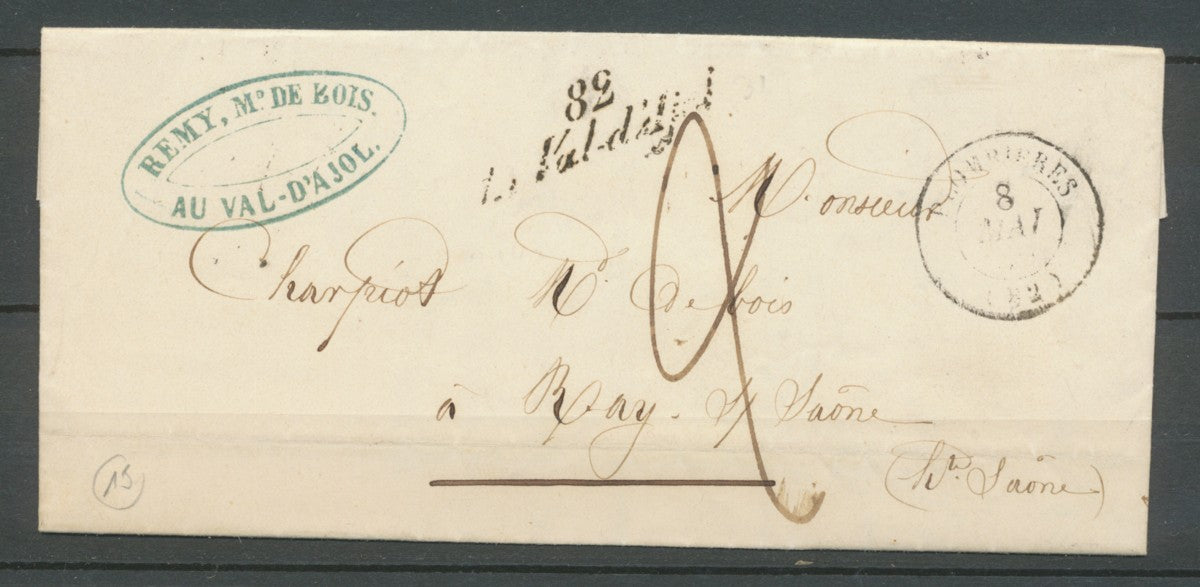 REMY, Md DE BOIS.
AU VAL-D'AJOL.
82
Le Val-d'Ajol
PLOMBIERES
8
MAI
(82)
2
Monsieur
Charpiot Md de bois
à Ray s/ Saône
(hte Saône)
15